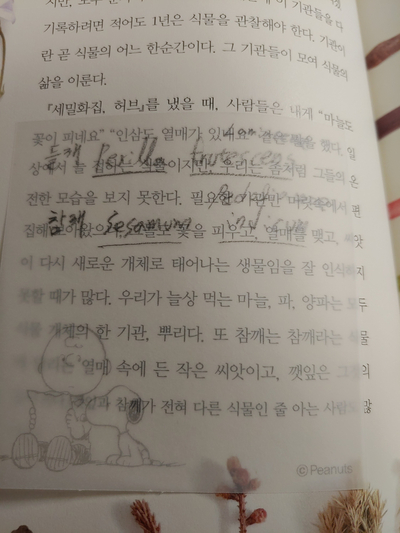 지만, 모두
기록하려면 적어도 1년은 식물을 관찰해야 한다. 기관이
란 곧 식물의 어느 한순간이다. 그 기관들이 모여 식물의
삶을 이룬다.
『세밀화집, 허브』를 냈을 때, 사람들은 내게 “마늘도
꽃이 피네요” “인삼도 열매가 있네요” 같은 말을 했다. 일
상에서 늘 접하는 식물이지만, 우리는 좀처럼 그들의 온
들깨 Perilla frutescens
전한 모습을 보지 못한다. 필요한 기관만 마켓에서 편
참깨 Sesamum indicum
꽃을 피우고, 열매를 맺고, 씨앗
이 다시 새로운 개체로 태어나는 생물임을 잘 인식하지
못할 때가 많다. 우리가 늘상 먹는 마늘, 파, 양파는 모두
식물 개체의 한 기관, 뿌리다. 또 참깨는 참깨라는 식물
열매 속에 든 작은 씨앗이고, 깻잎은 그
참깨가 전혀 다른 식물인 줄 아는 사람도 많
©Peanuts